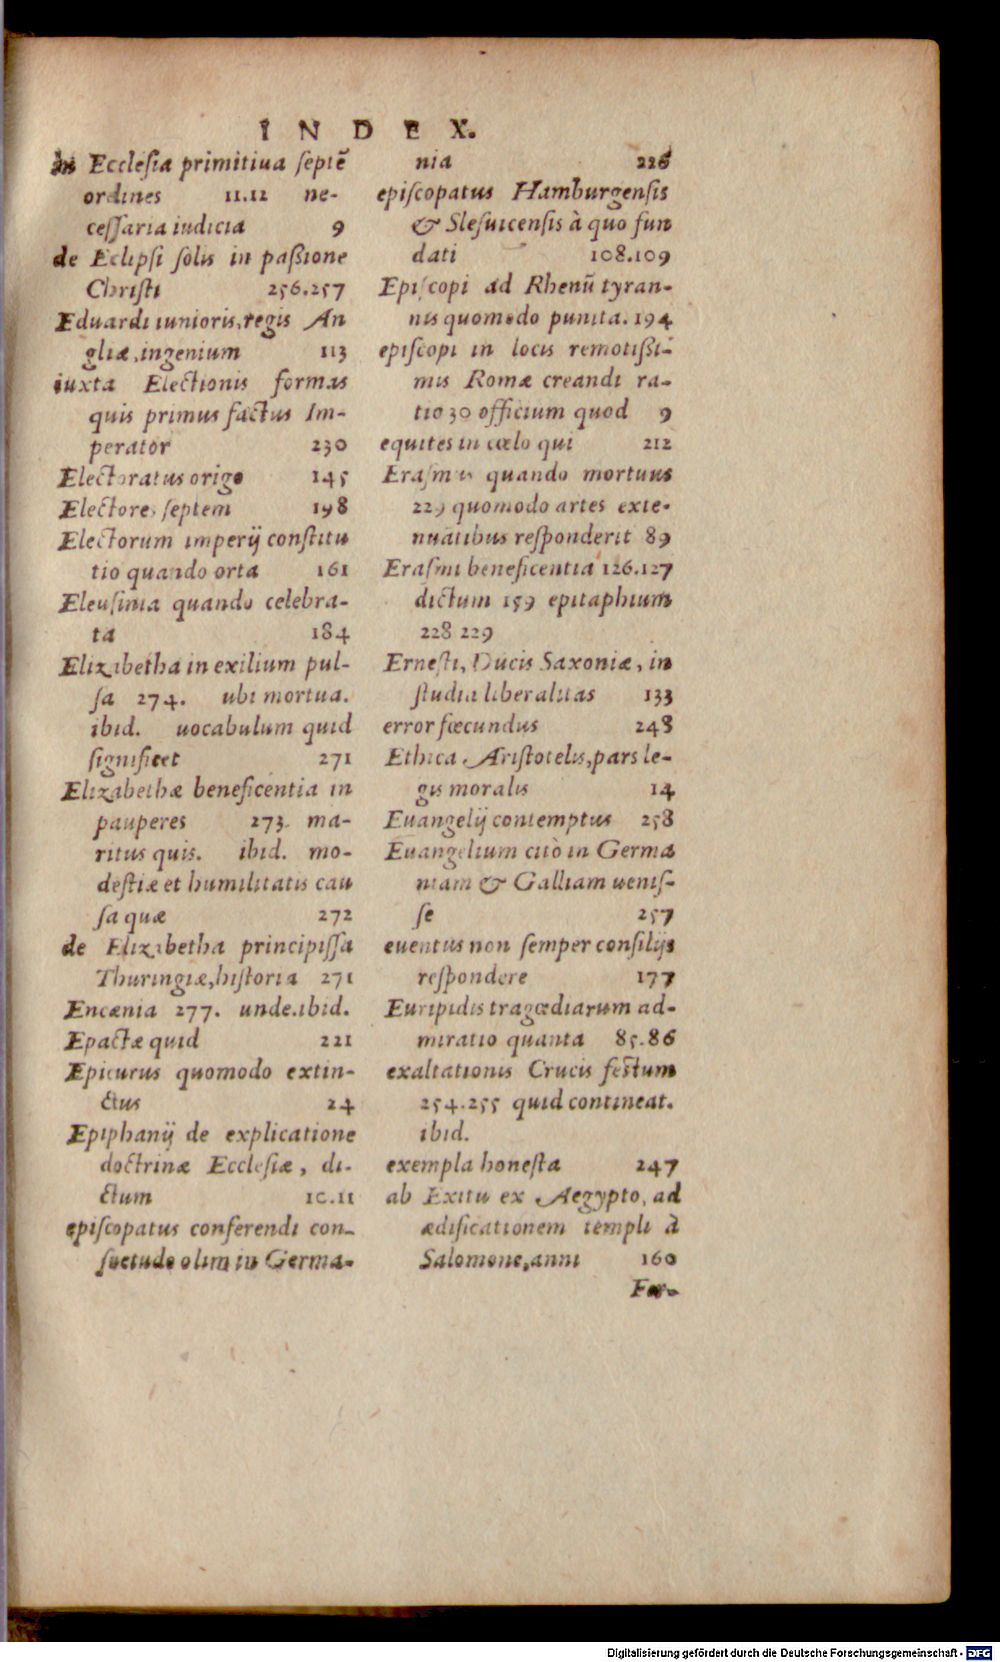 INDEX.
in Ecclesia primitiua septē
ordines 11.12 ne-
cessaria iudicia 9
de Eclipsi solis in passione
Christi 256.257
Eduardi iunioris, regis An
gliæ, ingenium 113
iuxta Electionis formas
quis primus factus Im-
perator 230
Electoratus origo 145
Electores septem 198
Electorum imperij constitu
tio quando orta 161
Eleusinia quando celebra-
ta 184
Elizabetha in exilium pul-
sa 274. ubi mortua.
ibid. uocabulum quid
significet 271
Elizabethæ beneficentia in
pauperes 273. ma-
ritus quis. ibid. mo-
destiæ et humilitatis cau
sa quæ 272
de Elizabetha principissa
Thuringiæ, historia 271
Encænia 277. unde. ibid.
Epactæ quid 221
Epicurus quomodo extin-
ctus 24
Epiphanij de explicatione
doctrinæ Ecclesiæ, di-
ctum 10.11
episcopatus conferendi con-
suetudo olim in Germa-
nia 226
episcopatus Hamburgensis
& Slesuicensis à quo fun
dati 108.109
Episcopi ad Rhenū tyran-
nis quomodo punita. 194
episcopi in locis remotißi-
mis Romæ creandi ra-
tio 30 officium quod 9
equites in cœlo qui 212
Erasmus quando mortuus
229 quomodo artes exte-
nuātibus responderit 89
Erasmi beneficentia 126.127
dictum 159 epitaphium
228 229
Ernesti, Ducis Saxoniæ, in
studia liberalitas 133
error fœcundus 248
Ethica Aristotelis, pars le-
gis moralis 14
Euangelij contemptus 258
Euangelium citò in Germa
niam & Galliam uenis-
se 257
euentus non semper consilijs
respondere 177
Euripidis tragœdiarum ad-
miratio quanta 85.86
exaltationis Crucis festum
254.255 quid contineat.
ibid.
exempla honesta 247
ab Exitu ex Aegypto, ad
ædificationem templi à
Salomone, anni 160
Digitalisierung gefördert durch die Deutsche Forschungsgemeinschaft - DFG